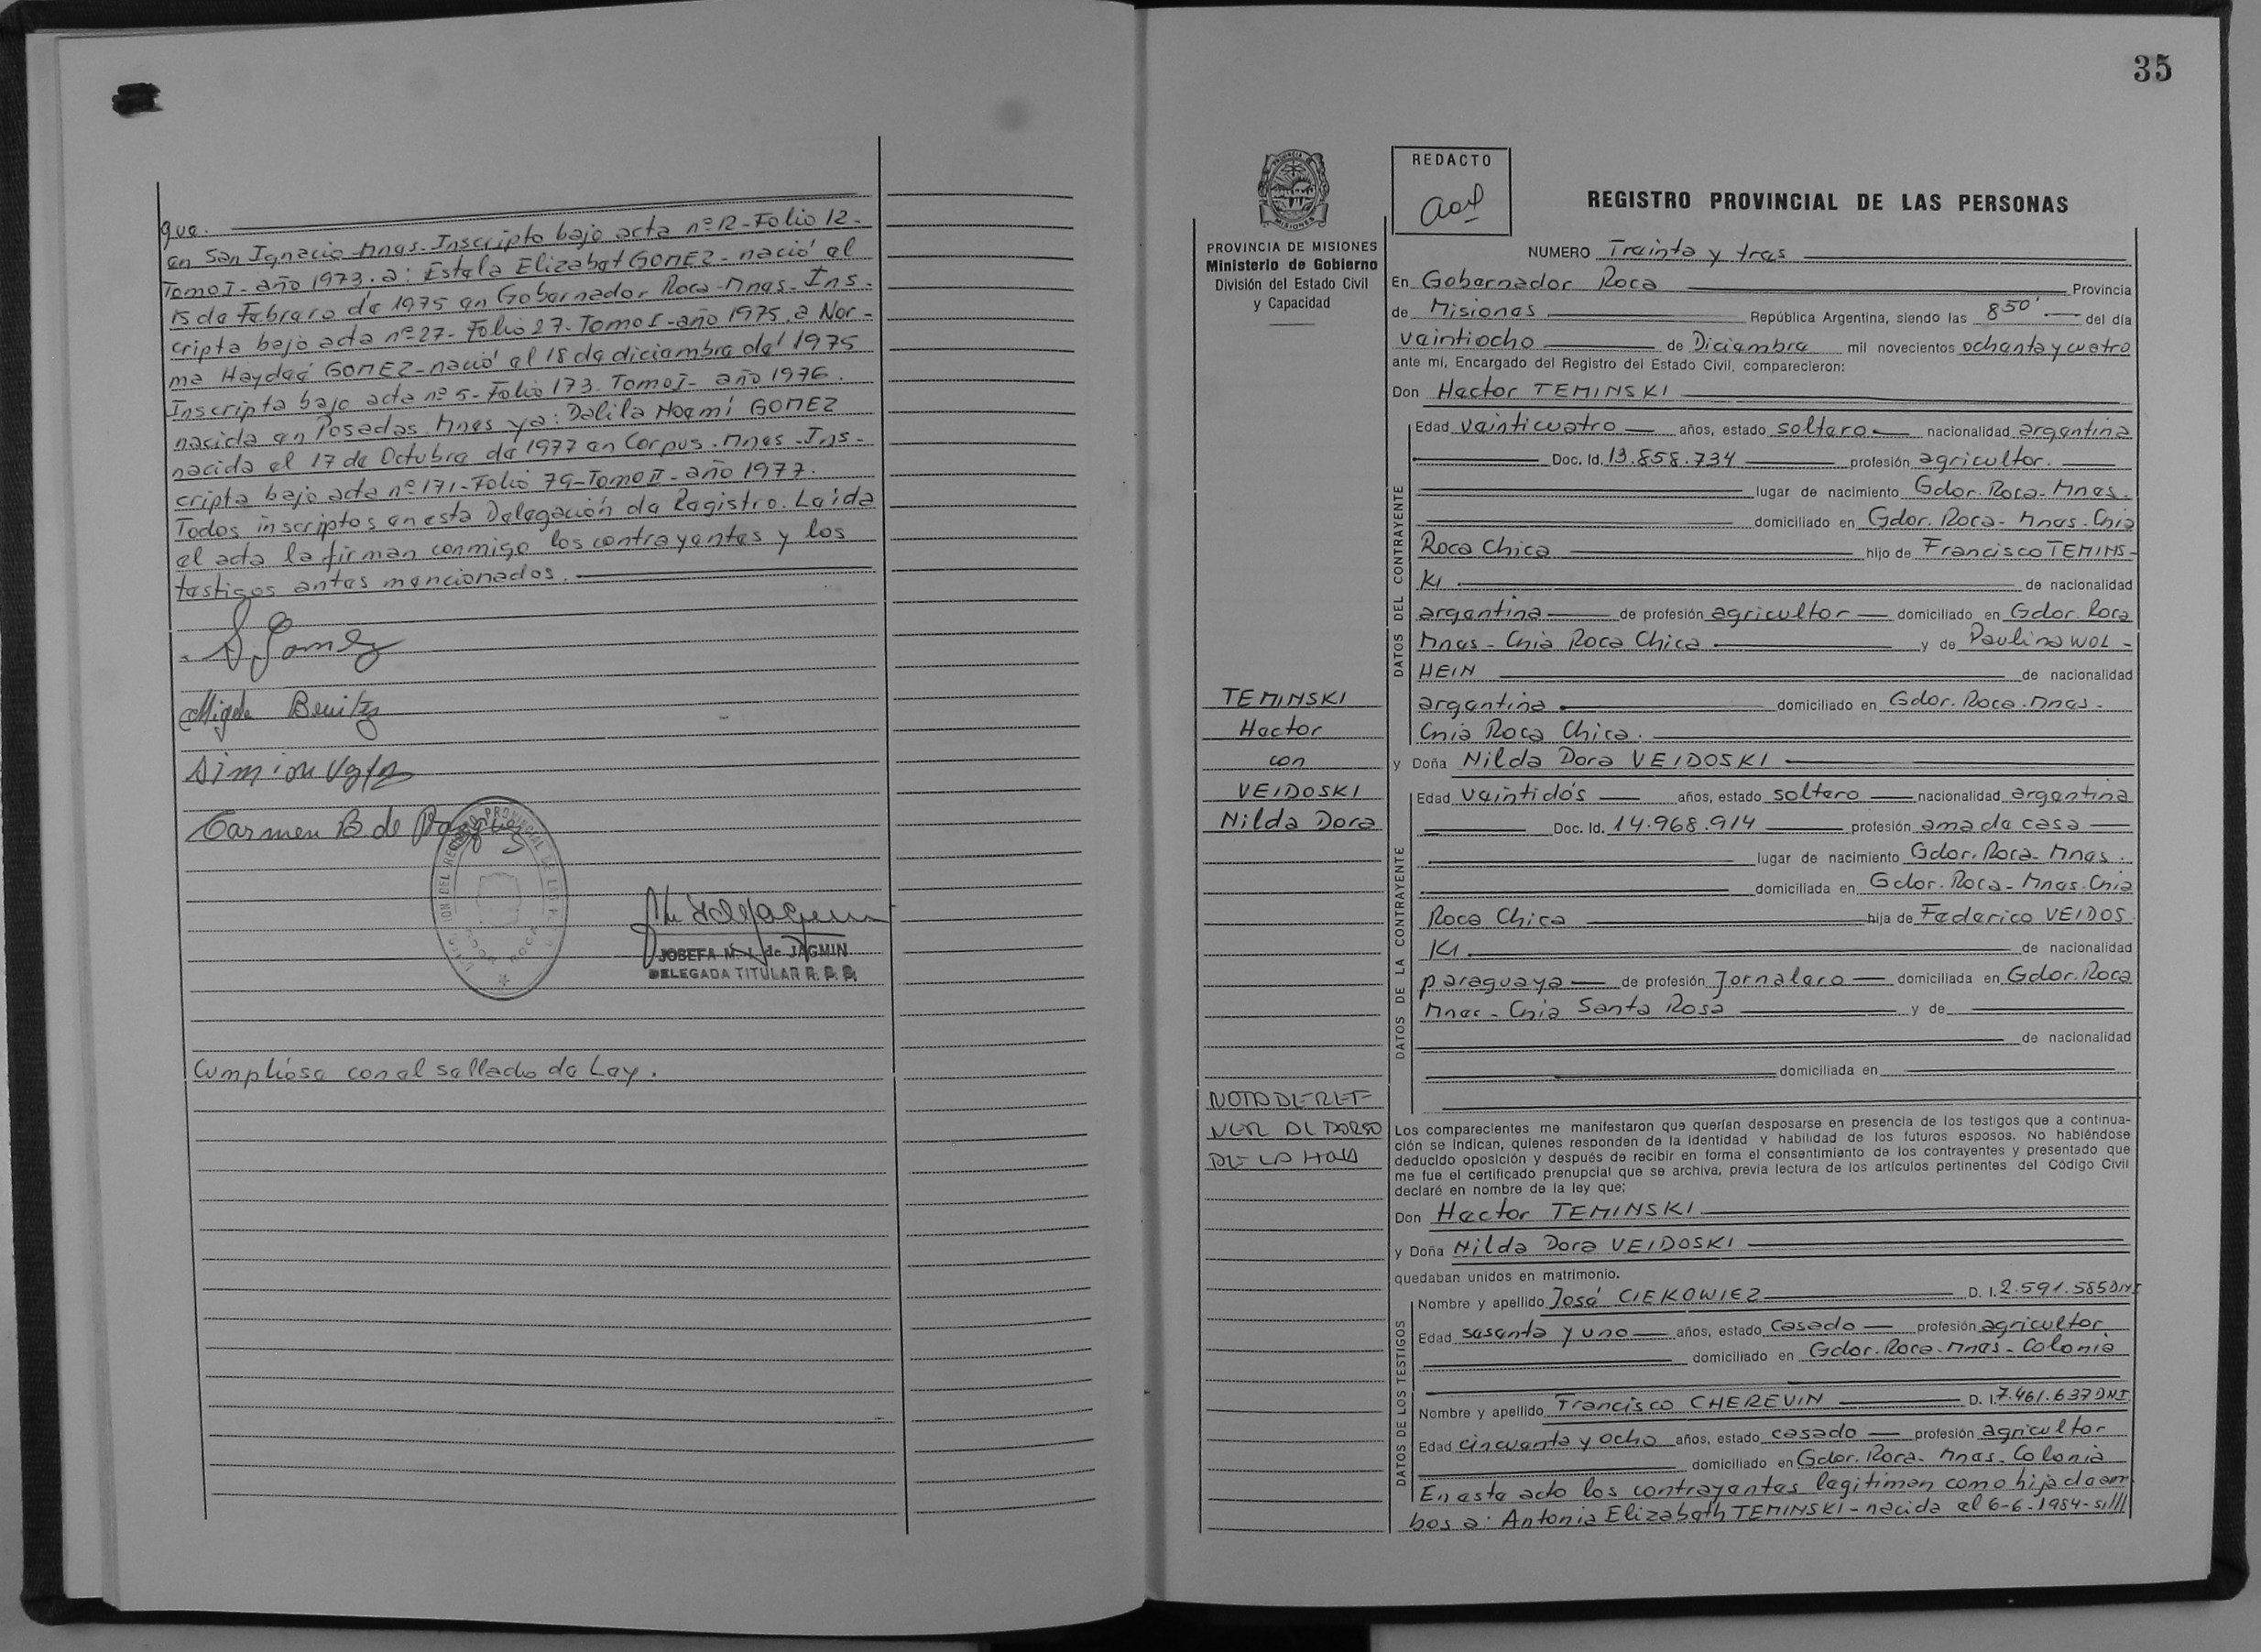 que.
en San Ignacio-Mnes-Inscripto bajo acta nº12-Folio 12-
Tomo I-año 1973.a: Estela Elizabet GOMEZ-nació el
15 de Febrero de 1975 en Gobernador Roca-Mnes-Ins-
cripta bajo acta nº27-Folio 27-Tomo I-año 1975.a Nor-
ma Haydeé GOMEZ-nació el 18 de diciembre del 1975
Inscripta bajo acta nº5-Folio 173.Tomo I-año 1976.
nacida en Posadas.Mnes y a: Dalila Noemí GOMEZ
nacida el 17 de Octubre de 1977 en Corpus.Mnes-Ins-
cripta bajo acta nº171-Folio 79-Tomo II-año 1977.
Todos inscriptos en esta Delegación de Registro. Leída
el acta la firman conmigo los contrayentes y los
testigos antes mencionados.
Benitez
Carmen B. de
JOSEFA M. de JAGMIN
DELEGADA TITULAR R. P. P.
Cumplióse con el sellado de Ley.
35
PROVINCIA DE MISIONES
Ministerio de Gobierno
División del Estado Civil
y Capacidad
TEMINSKI
Hector
con
VEIDOSKI
Nilda Dora
NOTA DE REF
VER AL DORSO
DE LA HOJA
REDACTO
REGISTRO PROVINCIAL DE LAS PERSONAS
NUMERO Treinta y tres
En Gobernador Roca Provincia
de Misiones República Argentina, siendo las 850' del día
veintiocho de Diciembre mil novecientos ochenta y cuatro
ante mí, Encargado del Registro del Estado Civil, comparecieron:
Don Hector TEMINSKI
DATOS DEL CONTRAYENTE
Edad veinticuatro años, estado soltero nacionalidad argentina
Doc. Id. 13.858.734 profesión agricultor.
lugar de nacimiento Gdor. Roca-Mnes.
domiciliado en Gdor. Roca-Mnes-Cnia
Roca Chica hijo de Francisco TEMINS-
KI de nacionalidad
argentina de profesión agricultor domiciliado en Gdor. Roca
Mnes-Cnia Roca Chica y de Paulina WOL-
HEIN de nacionalidad
argentina domiciliado en Gdor. Roca.Mnes-
Cnia Roca Chica.
y Doña Nilda Dora VEIDOSKI
DATOS DE LA CONTRAYENTE
Edad veintidós años, estado soltera nacionalidad argentina
Doc. Id. 14.968.914 profesión ama de casa
lugar de nacimiento Gdor. Roca-Mnes.
domiciliada en Gdor. Roca-Mnes-Cnia
Roca Chica hija de Federico VEIDOS-
KI de nacionalidad
paraguaya de profesión Jornalero domiciliada en Gdor. Roca
Mnes-Cnia Santa Rosa y de
de nacionalidad
domiciliada en
Los comparecientes me manifestaron que querían desposarse en presencia de los testigos que a continua-
ción se indican, quienes responden de la identidad y habilidad de los futuros esposos. No habiéndose
deducido oposición y después de recibir en forma el consentimiento de los contrayentes y presentado que
me fue el certificado prenupcial que se archiva, previa lectura de los artículos pertinentes del Código Civil
declaré en nombre de la ley que;
Don Hector TEMINSKI
y Doña Nilda Dora VEIDOSKI
quedaban unidos en matrimonio.
DATOS DE LOS TESTIGOS
Nombre y apellido José CIEKOWIEZ D. I. 2.591.585 DNI
Edad sesenta y uno años, estado casado profesión agricultor
domiciliado en Gdor. Roca-Mnes-Colonia
Nombre y apellido Francisco CHEREVIN D. I. 7.461.637 DNI
Edad cincuenta y ocho años, estado casado profesión agricultor
domiciliado en Gdor. Roca-Mnes-Colonia
En este acto los contrayentes legitiman como hija de am-
bos a: Antonia Elizabeth TEMINSKI-nacida el 6-6-1984-